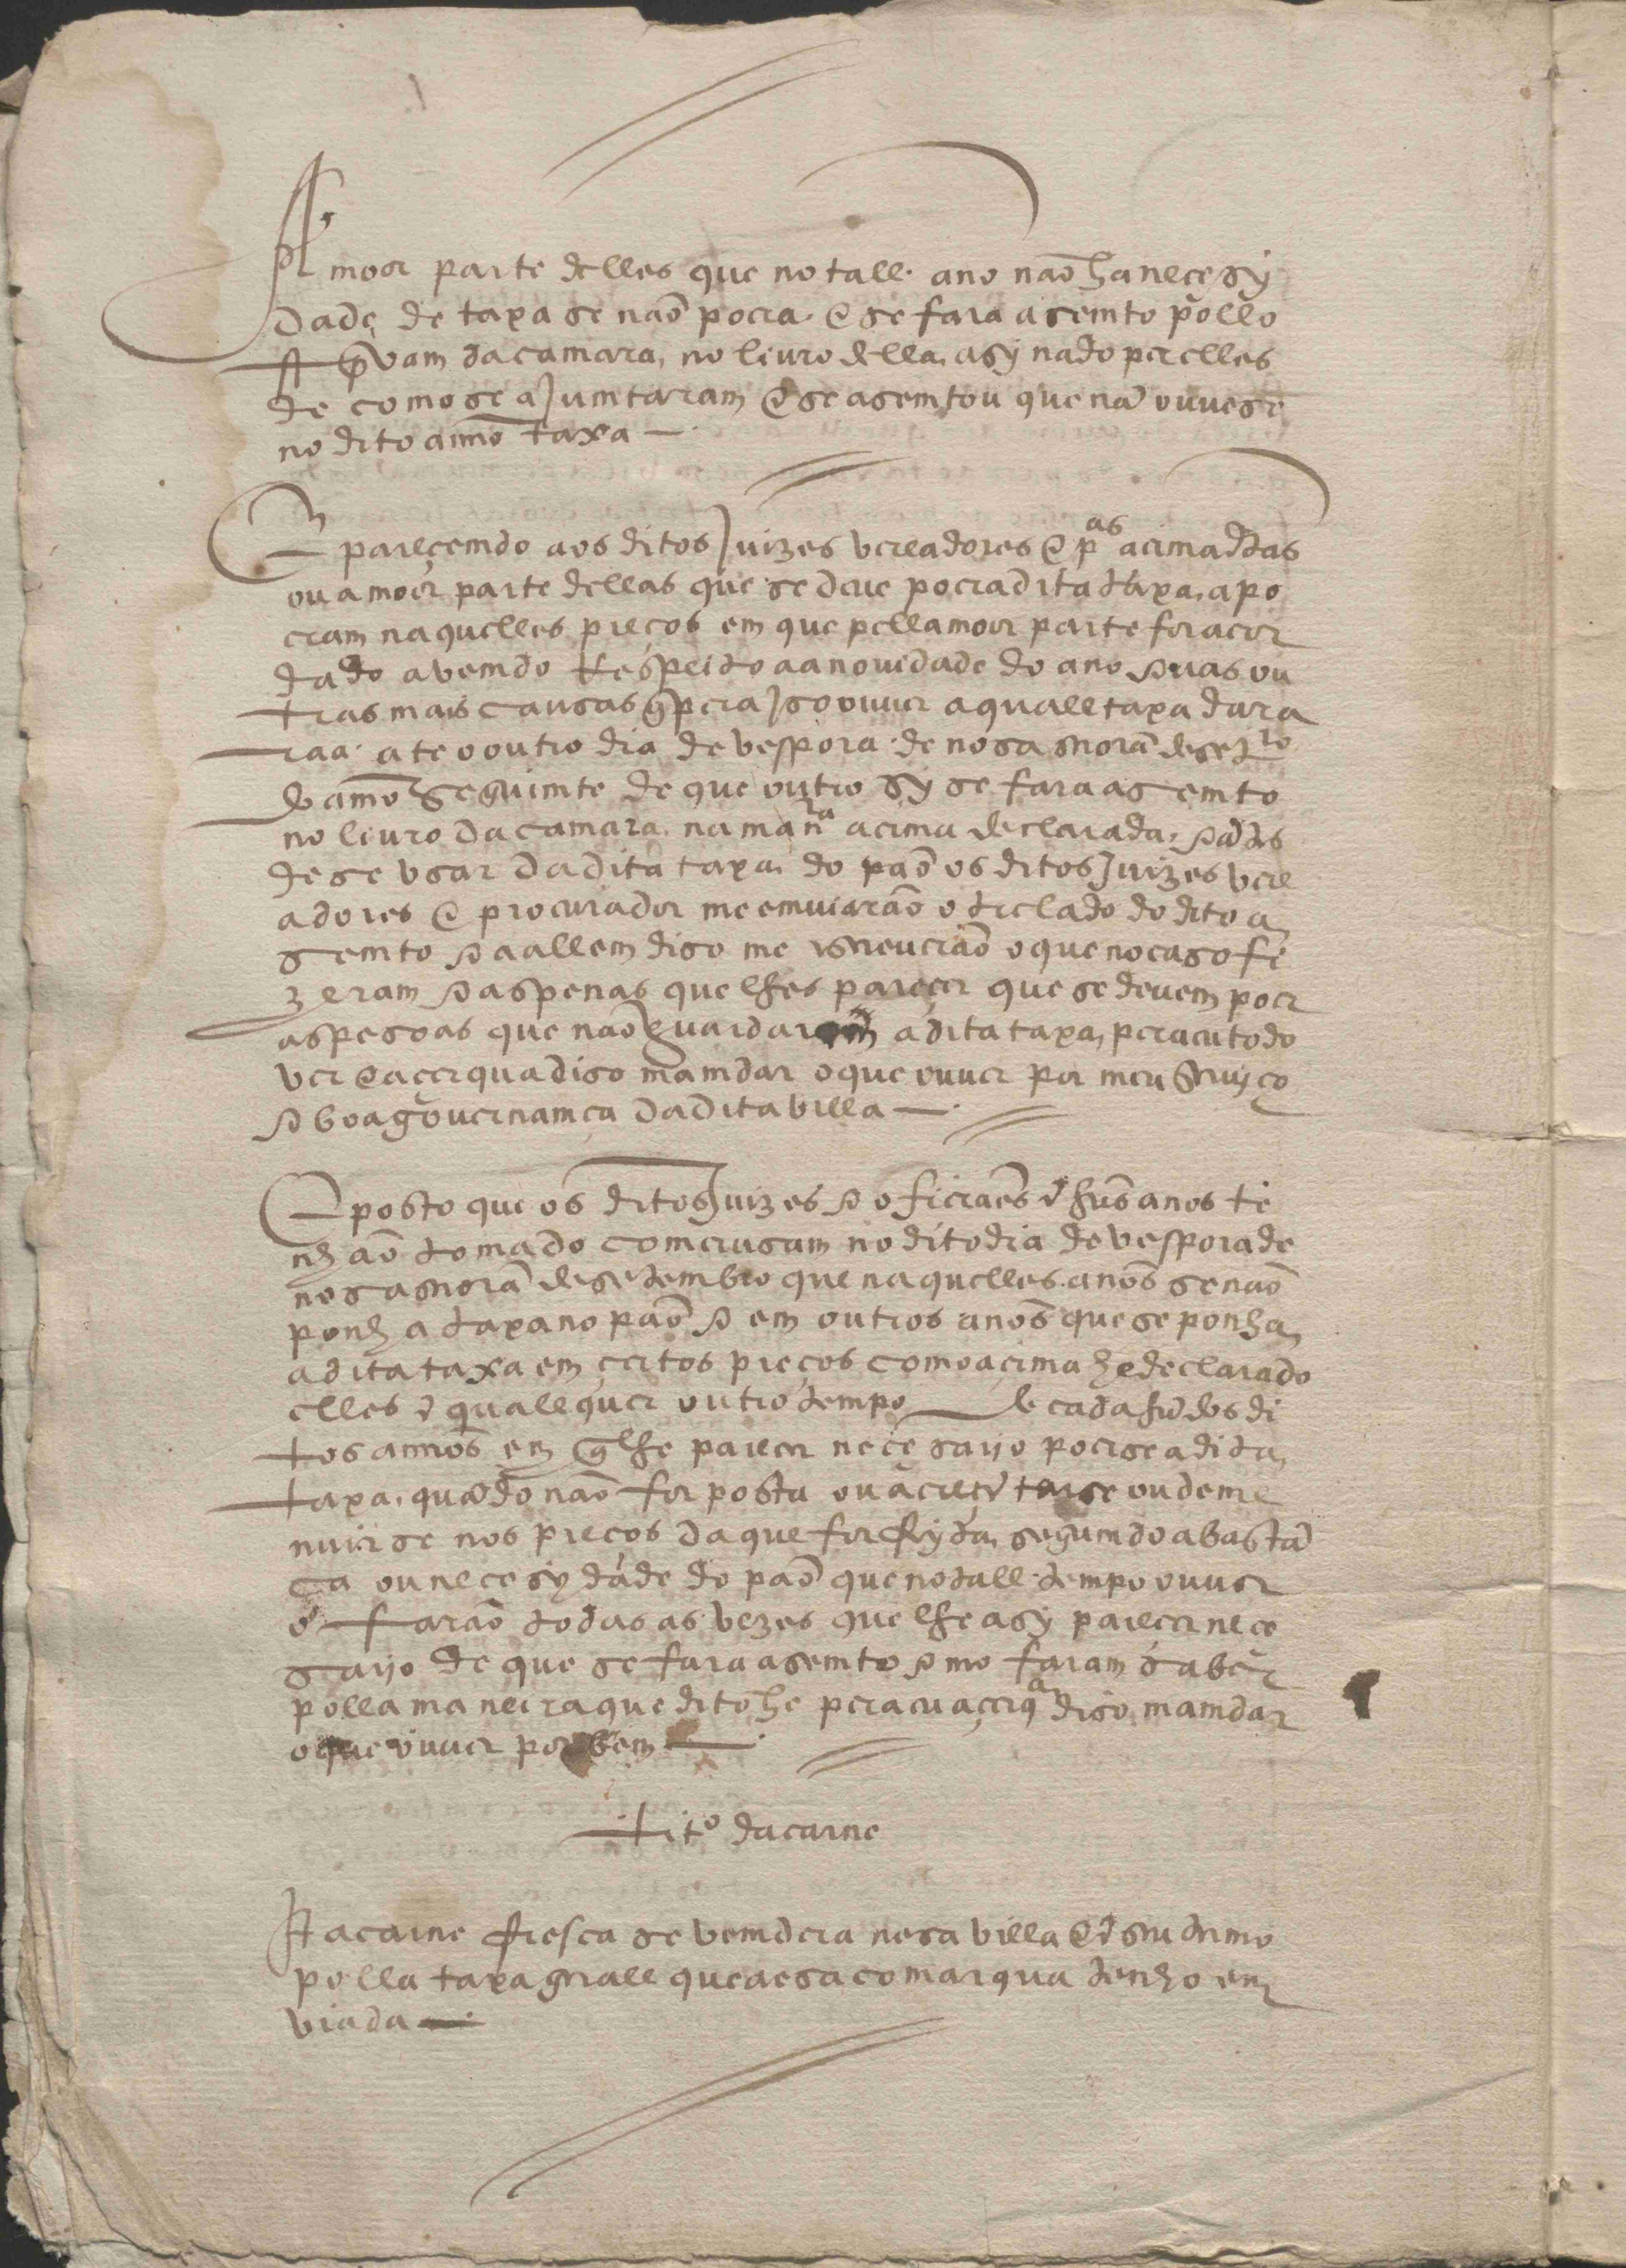 A moor parte delles que no tall ano não ha necesy
dade de taxa se não poera. e se fara asemto pollo
esprivam da camara, no livro della, asynado per elles
de como se ajumtaram e se asemtou que nã ouvese
no dito anno taxa —
E parecemdo aos ditos Juizes vereadores e pas acima ditas
ou a moor parte dellas que se deve poer a dita taxa, a po
eram naquelles preços em que pella moor parte for acor
dado avemdo Respeito aa novidade do ano e as ou
tras mais causas q̃ pera Jso ouver a quall taxa dura
raa. ate o outro dia de vespora de nosa snorã de setro
do anno seguimte de que outro sy se fara asemto
no livro da camara, na manra acima declarada, e ãtes
de se usar da dita taxa do pão os ditos Juizes vere
adores e procurador me emviarão o trelado do dito a
semto e aallem diso me escreverão o que no caso fi
zeram e as penas que lhes parecer que se devem poer
as pesoas que não guardarem a dita taxa, pera eu todo
ver e acerqua diso mamdar o que ouver por meu serviço
e boa governamça da dita villa —
E posto que os ditos Juizes e oficiaes ẽ hũs anos te
nhão tomado comcrusam no dito dia de vespora de
nosa snorã de setembro que naquelles anos se não
ponha taxa no pão e em outros anos que se ponha
a dita taxa em certos preços como acima he declarado
elles ẽ quallquer outro tempo de cada hũ dos di
tos annos em q̃ lhe parecer necesaryo poerse a dita
taxa, quãdo não for posta ou acrecẽtarse ou deme
nuirse nos preços da que for posta, segumdo abastã
ça ou necesydade do pão que no tall tempo ouver
o farão todas as vezes que lhe asy parecer nece
saryo de que se fara asemto e mo faram saber
polla maneira que dito he pera eu acerqa diso mamdar
o que ouver por bem —
tito da carne
A carne fresca se vemdera nesa villa e ẽ seu termo
polla taxa gerall que a esa comarqua tenho em
viada —